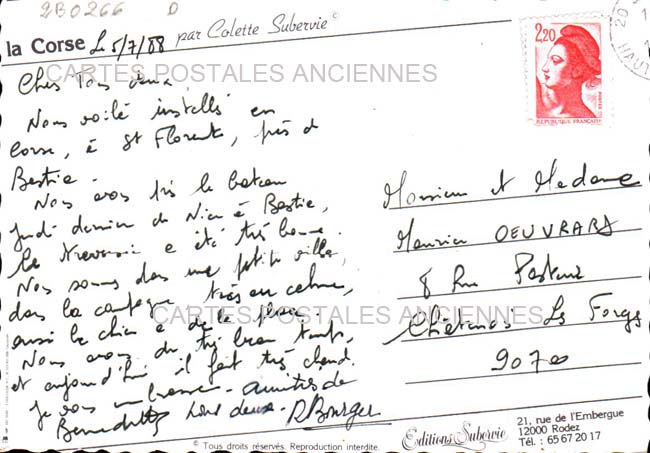 2B0266 D
la Corse Le 5/7/88 par Colette Subervie ©
2,20
REPUBLIQUE FRANÇAISE
20
HAUT
CARTES POSTALES ANCIENNES
Chers Tous deux,
Nous voilà installés en
Corse, à St Florent, près d
Bastia.
Nous avons pris le bateau
jeudi dernier de Nice à Bastia,
la traversée a été très bonne.
Nous sommes dans une petite villa,
dans la campagne très au calme,
CARTES POSTALES ANCIENNES
aussi le chien a de la place.
Nous avons du très beau temps,
et aujourd'hui il fait très chaud.
Je vous embrasse - amitiés de
Bernadette tous deux. R Bourger
Monsieur et Madame
Maurice OEUVRARD
8 Rue Pasteur
Châtenois Les Forges
90700
© Tous droits réservés. Reproduction interdite.
Editions Subervie
21, rue de l'Embergue
12000 Rodez
Tél. : 65 67 20 17